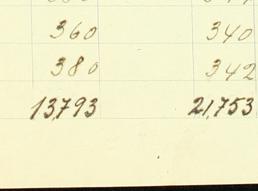 360 340
380 342
13,793 21,753